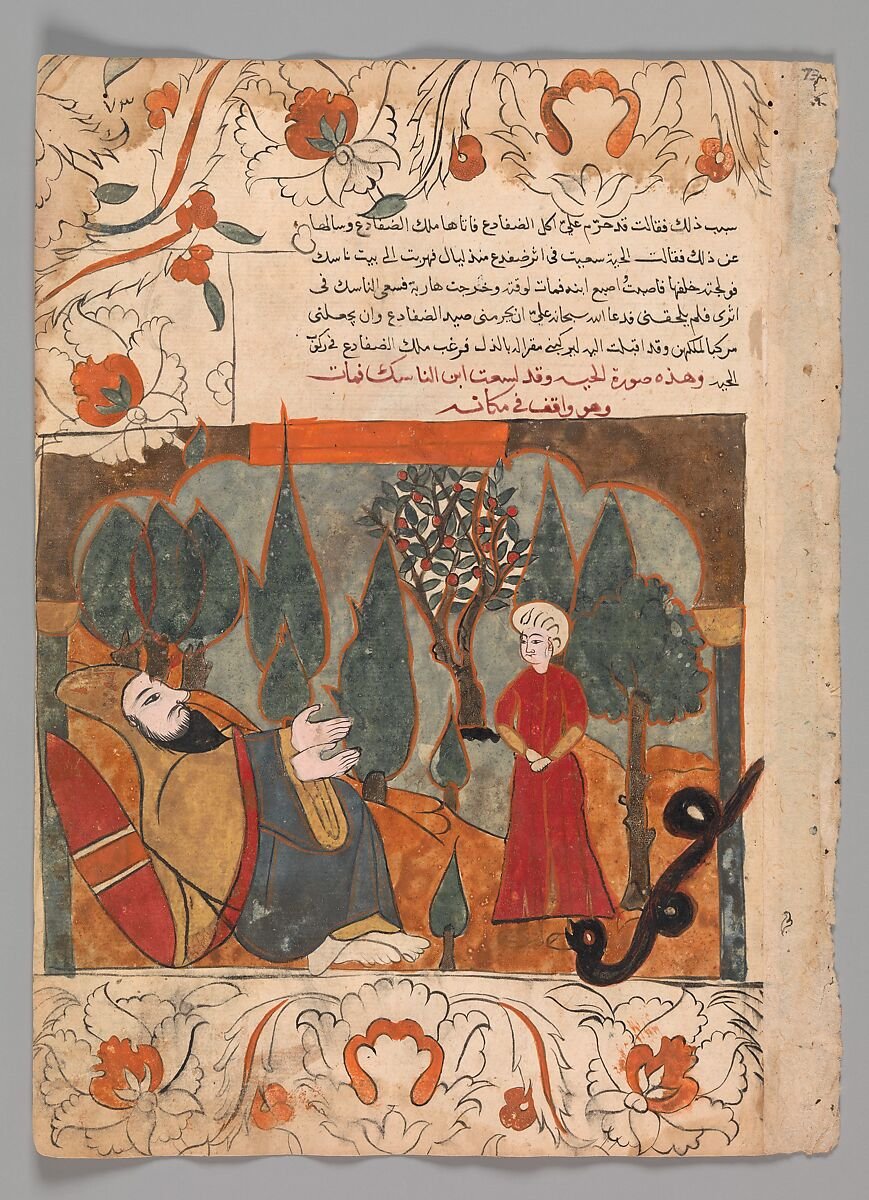 ٧٣
سبب ذلك فقالت قد حرّم عليّ اكل الضفادع فاتاها ملك الضفادع وسالها
عن ذلك فقالت الحية سعيت في اثر ضفدع منذ ليال فهربت الى بيت ناسك
فولجته خلفها فاصبتُ اصبع ابنه فمات لوقته وخرجت هاربة فسعى الناسك في
اثري فلم يلحقني فدعا الله سبحانه عليّ ان يحرمني صيد الضفادع وان يجعلني
مركبا لملكهن وقد اقبلت اليه ليركبني مقرا له بالذل فرغب ملك الضفادع في ركوب
الحيه وهذه صورة الحيه وقد لسعت ابن الناسك فمات
وهو واقف في مكانه